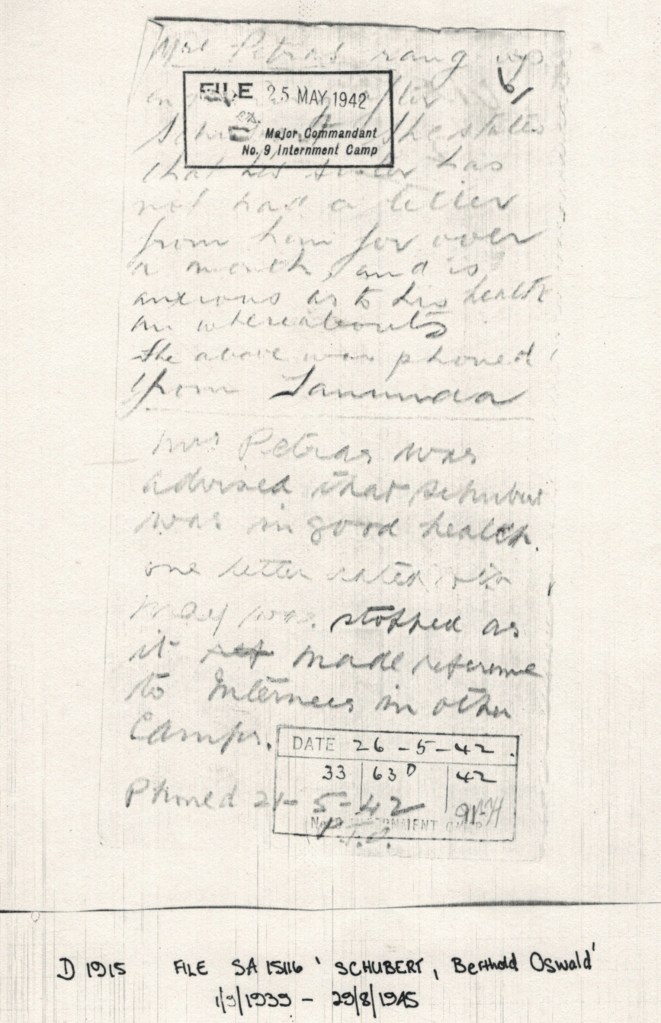 Mrs Petras rang up
FILE 25 MAY 1942
Major Commandant
No. 9 Internment Camp
she states
that his sister has
not had a letter
from him for over
a month, and is
anxious as to his health
an whereabouts
The above was phoned
from Tanunda
Mrs Petras was
advised that Schubert
was in good health.
one letter dated
May was stopped as
it ref made reference
to Internees in other
Camps.
DATE 26-5-42.
33 63D 42
Phoned 21-5-42
P.T.O.
D 1915 FILE SA 15116 'SCHUBERT, Berthold Oswald'
1/9/1939 - 29/8/1945